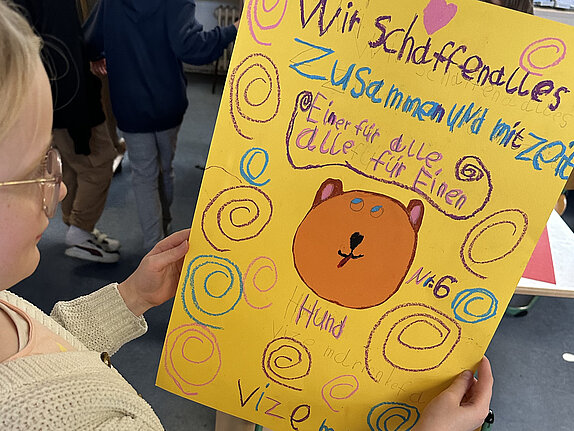 Wir schaffenalles
Zusammen und mit Zeit
Einer für alle
alle für Einen
Nr.6
Hund
vize